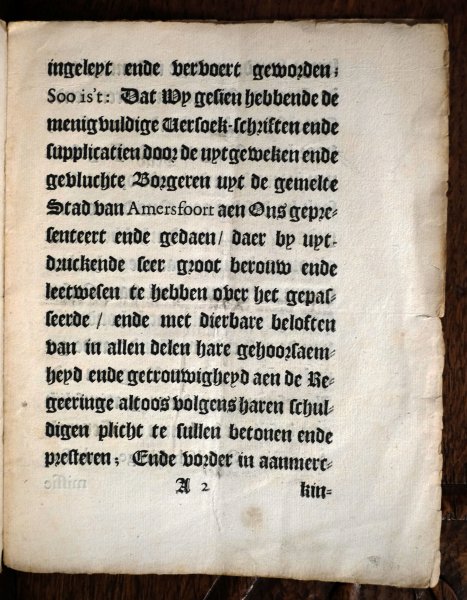 ingeleyt ende vervoert geworden;
Soo is't: Dat Wy gesien hebbende de
menigvuldige Versoek-schriften ende
supplicatien door de uytgeweken ende
gevluchte Borgeren uyt de gemelte
Stad van Amersfoort aen Ons gepre-
senteert ende gedaen/ daer by uyt-
druckende seer groot berouw ende
leetwesen te hebben over het gepas-
seerde/ ende met dierbare beloften
van in allen delen hare gehoorsaem-
heyd ende getrouwigheyd aen de Re-
geeringe altoos volgens haren schul-
digen plicht te sullen betonen ende
presteren; Ende vorder in aanmerc-
A 2 kin-